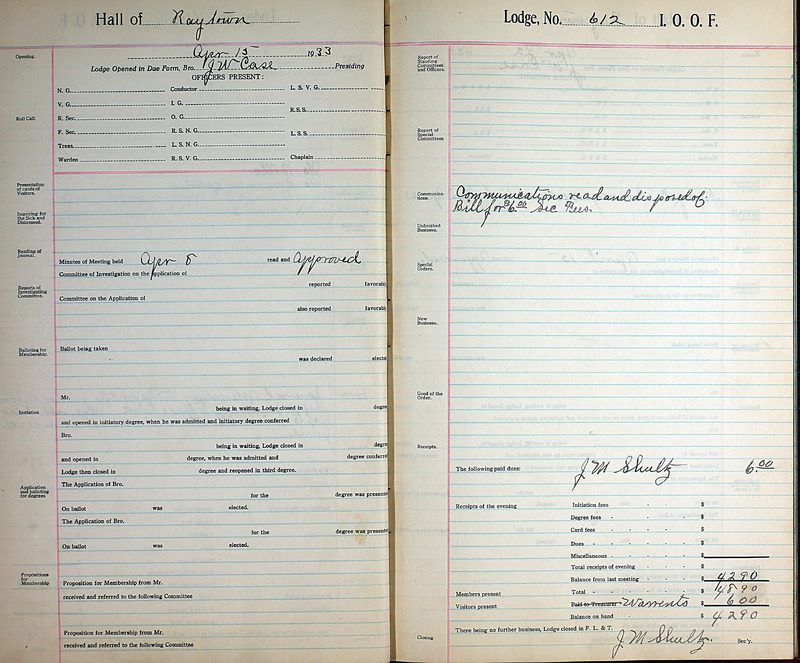 Hall of Raytown
Opening. Apr 15 1933
Lodge Opened in Due Form, Bro. J W Case Presiding
OFFICERS PRESENT:
Roll Call.
N. G. Conductor L. S. V. G.
V. G. I. G.
R. S. S.
R. Sec. O. G.
F. Sec. R. S. N. G. L. S. S.
Treas. L. S. N. G.
Warden R. S. V. G. Chaplain
Presentation of cards of Visitors.
Inquiring for the Sick and Distressed.
Reading of Journal.
Minutes of Meeting held Apr 8 read and Approved
Committee of Investigation on the application of
Reports of Investigating Committee.
reported favorabl
Committee on the Application of
also reported favorabl
Balloting for Membership.
Ballot being taken
was declared electe
Mr.
Initiation
being in waiting, Lodge closed in degre
and opened in initiatory degree, when he was admitted and initiatory degree conferred
Bro.
being in waiting, Lodge closed in degre
and opened in degree, when he was admitted and degree conferre
Lodge then closed in degree and reopened in third degree.
Application and balloting for degrees
The Application of Bro.
for the degree was presente
On ballot was elected.
The Application of Bro.
for the degree was presente
On ballot was elected.
Propositions for Membership
Proposition for Membership from Mr.
received and referred to the following Committee
Proposition for Membership from Mr.
received and referred to the following Committee
Lodge, No. 612 I. O. O. F.
Report of Standing Committees and Officers.
Report of Special Committees
Communications. Communications read and disposed of.
Bill for $6.00 Sec Fees.
Unfinished Business.
Special Orders.
New Business.
Good of the Order.
Receipts.
The following paid dues: J M Shultz 6.00
Receipts of the evening Initiation fees $
Degree fees $
Card fees $
Dues $
Miscellaneous $
Total receipts of evening $
Balance from last meeting $ 42 90
Members present Total $ 48 90
Visitors present Paid to Treasurer Warrents $ 6 00
Balance on hand $ 42 90
There being no further business, Lodge closed in F. L. & T.
Closing J M Shultz Sec'y.